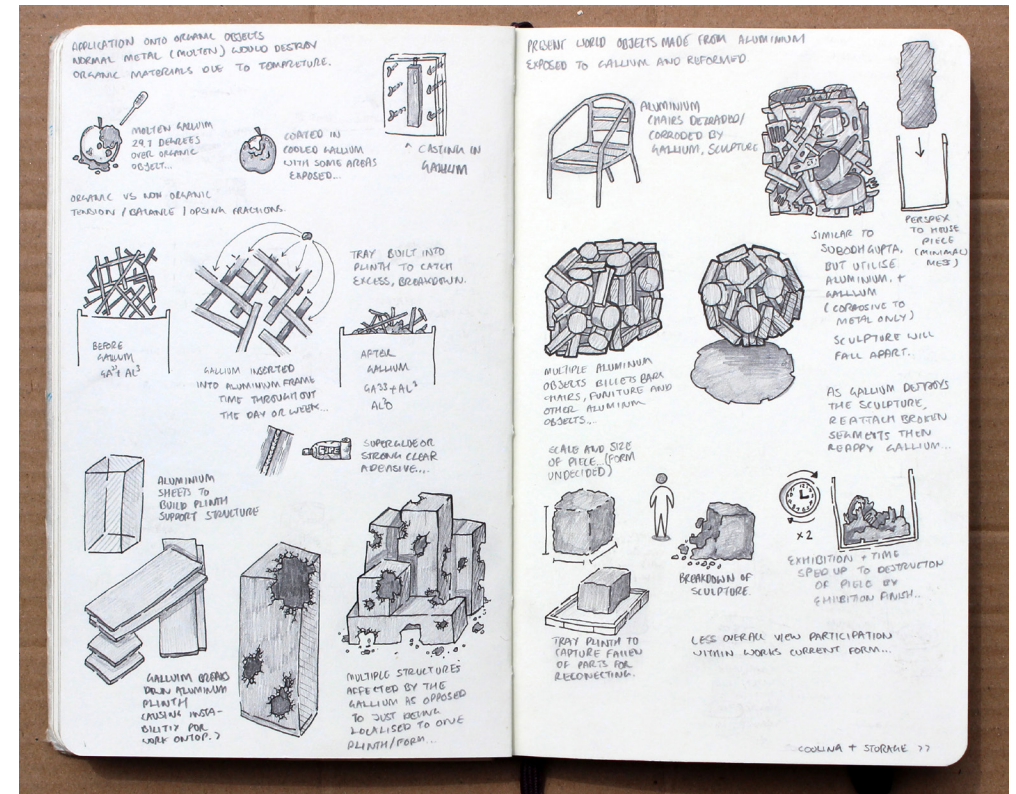 APPLICATION ONTO ORGANIC OBJECTS
NORMAL METAL (MOLTEN) WOULD DESTROY
ORGANIC MATERIALS DUE TO TEMPRETURE.
MOLTEN GALLIUM
29.7 DEGREES
OVER ORGANIC
OBJECT...
COATED IN
COOLED GALLIUM
WITH SOME AREAS
EXPOSED...
^ CASTING IN
GALLIUM
ORGANIC VS NON ORGANIC
TENSION / BALANCE / OPSING FRACTIONS.
BEFORE
GALLIUM
GALLIUM INSERTED
INTO ALUMINIUM FRAME
TIME THROUGHOUT
THE DAY OR WEEK...
TRAY BUILT INTO
PLINTH TO CATCH
EXCESS, BREAKDOWN.
AFTER
GALLIUM
SUPERGLUE OR
STRONG CLEAR
ADESIVE...
ALUMINIUM
SHEETS TO
BUILD PLINTH
SUPPORT STRUCTURE
GALLIUM BREAKS
DOWN ALUMINUM
PLINTH
CAUSING INSTA-
BILITIY FOR
WORK ONTOP.?
MULTIPLE STRUCTURES
AFFECTED BY THE
GALLIUM AS OPPOSED
TO JUST BEING
LOCALISED TO ONE
PLINTH/FORM...
PRESENT WORLD OBJECTS MADE FROM ALUMINIUM
EXPOSED TO GALLIUM AND REFORMED
ALUMINIUM
CHAIRS DEGRADED/
CORRODED BY
GALLIUM, SCULPTURE
PERSPEX
TO HOUSE
PIECE
(MINIMAL
MESS)
SIMILAR TO
SUBODH GUPTA,
BUT UTILISE
ALUMINIUM, +
GALLIUM
(CORROSIVE TO
METAL ONLY)
SCULPTURE WILL
FALL APART..
MULTIPLE ALUMINUM
OBJECTS BILLETS BARS
CHAIRS, FUNITURE AND
OTHER ALUMINUM
OBJECTS...
AS GALLIUM DETROYS
THE SCULPTURE,
REATTACH BROKEN
SEGMENTS THEN
REAPPY GALLIUM...
SCALE AND SIZE
OF PIECE...(FORM
UNDECIDED)
BREAKDOWN OF
SCULPTURE.
x2
EXHIBITION + TIME
SPED UP TO DESTRUCTION
OF PIECE BY
EXHIBITION FINISH...
TRAY PLINTH TO
CAPTURE FALLEN
OF PARTS FOR
RECONECTING.
LESS OVERALL VIEW PARTICIPATION
WITHIN WORKS CURRENT FORM...
COOLING + STORAGE >>